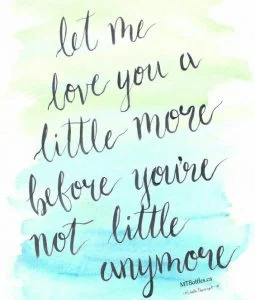 let me
love you a
little more
before you're
not little
anymore
MTBottles.ca